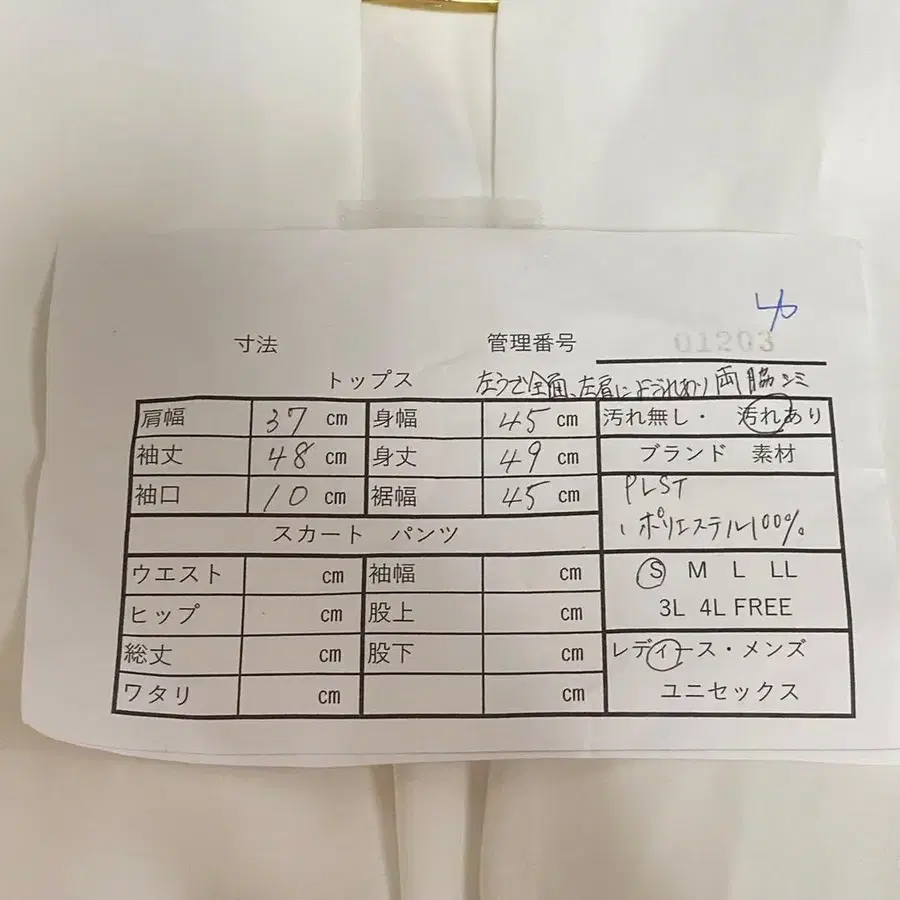 寸法 管理番号 01203
トップス 左うで全面、左肩によごれあり 両脇シミ
肩幅 37 cm 身幅 45 cm 汚れ無し・ 汚れあり
袖丈 48 cm 身丈 49 cm ブランド 素材
袖口 10 cm 裾幅 45 cm PLST
スカート パンツ ポリエステル100%
ウエスト cm 袖幅 cm S M L LL
ヒップ cm 股上 cm 3L 4L FREE
総丈 cm 股下 cm レディース・メンズ
ワタリ cm cm ユニセックス